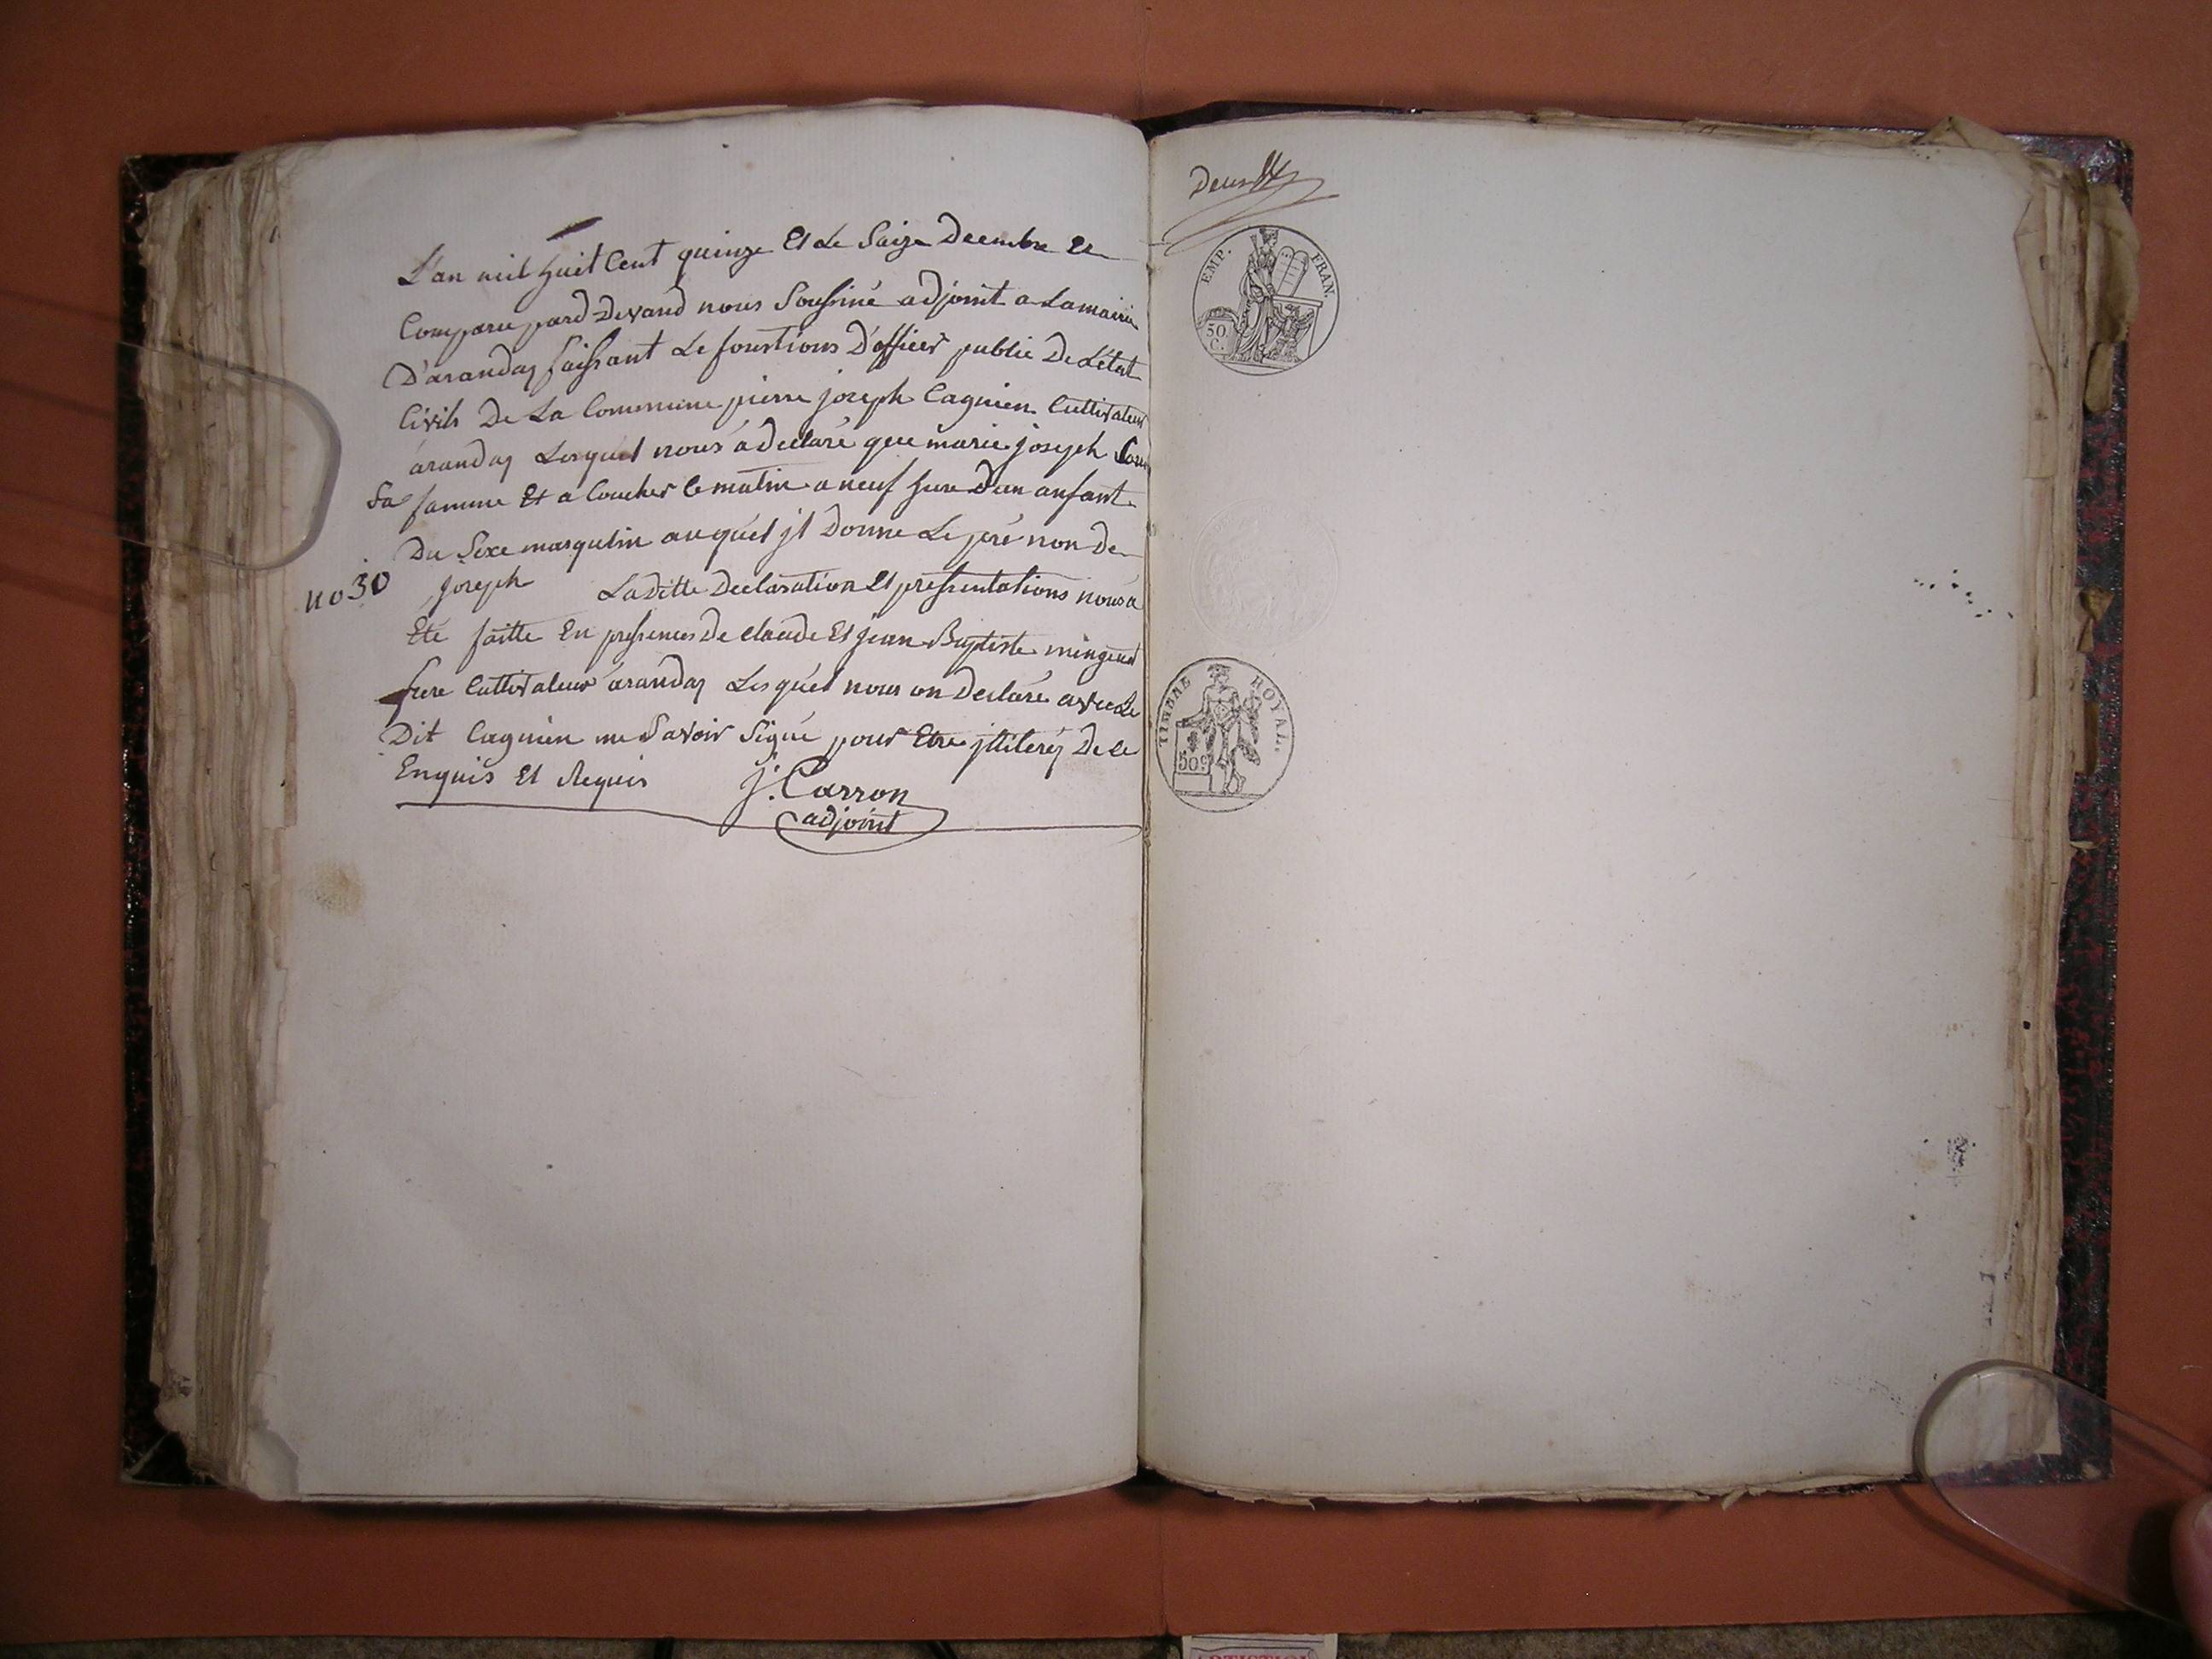 L'an mil huit Cent quinze Et Le Saize Decembre Et
Comparu pard Devand nous Soussiné adjoint a Lamairie
D'arandas faissant Le fonctions D'officier public De L'état
Civils De La Commune pierre joseph Cagnien Cultivateur
arandas Lesquel nous a declaré que marie joseph
Sa famme Et a Coucher Ce matin a neuf hure D'un anfant
Du Sexe masqulin auquel jl Donne Le pré non De
no 30 joseph La Ditte Declaration Et pressentations nous a
Eté faitte En pressences De claude Et jean Baptiste
frere Cultivateur arandas Les quel nous on Declaré avec Le
Dit Cagnien ne Savoir Signé pour Etre jlliteré De Ce
Enquis Et Requis J. Carron
adjoint
Deux
EMP. FRAN.
50 C.
TIMBRE ROYAL.
50 c